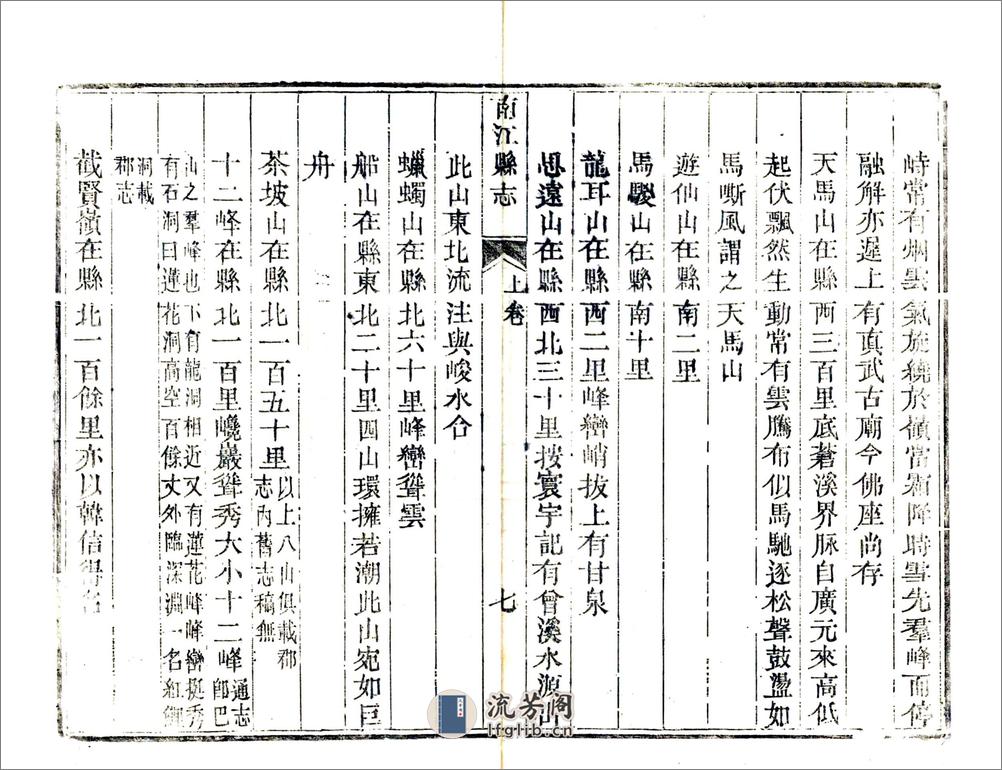 峙常有烟雲氣旋繞於嶺當霜降時雪先羣峰而停
融解亦遲上有真武古廟今佛座尚存
天馬山在縣西三百里底蒼溪界脉自廣元來高低
起伏飄然生動常有雲騰布似馬馳逐松聲鼓盪如
馬嘶風謂之天馬山
遊仙山在縣南二里
馬騣山在縣南十里
龍耳山在縣西二里峰巒峭拔上有甘泉
思遠山在縣西北三十里按寰宇記有曾溪水源出
南江縣志
上卷
七
此山東北流注與峻水合
蠟蠋山在縣北六十里峰巒聳雲
船山在縣東北二十里四山環擁若潮此山宛如巨
舟
茶坡山在縣北一百五十里以上八山俱載郡志內舊志稿無
十二峰在縣北一百里巉巖聳秀大小十二峰通志卽巴
山之羣峰也下有龍洞相近又有蓮花峰峰巒挺秀
有石洞曰蓮花洞高空百餘丈外臨深淵一名紅鯉
洞載
郡志
截賢嶺在縣北一百餘里亦以韓信得名
流芳阁
lfglib.cn